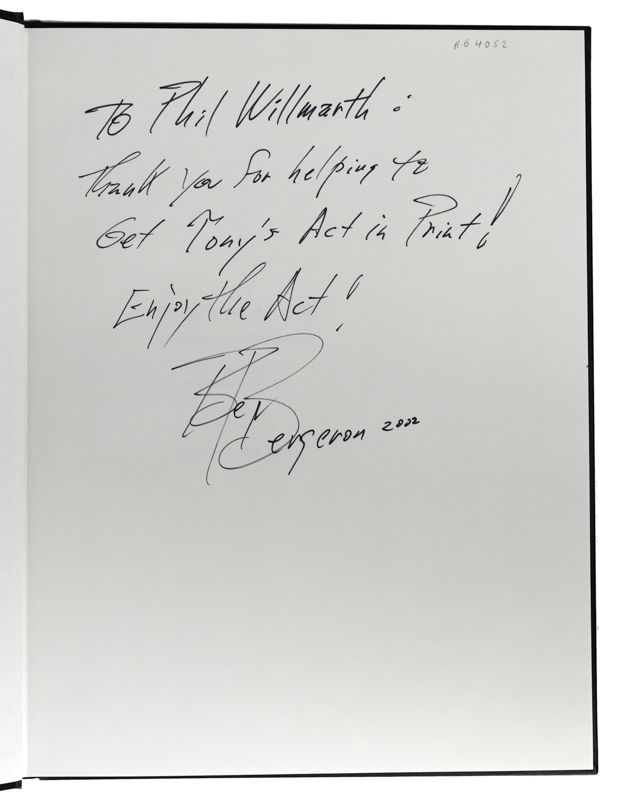 BB4052
To Phil Willmarth :
Thank you for helping to
Get Tony's Act in Print!
Enjoy the Act!
Bev
Bergeron 2002